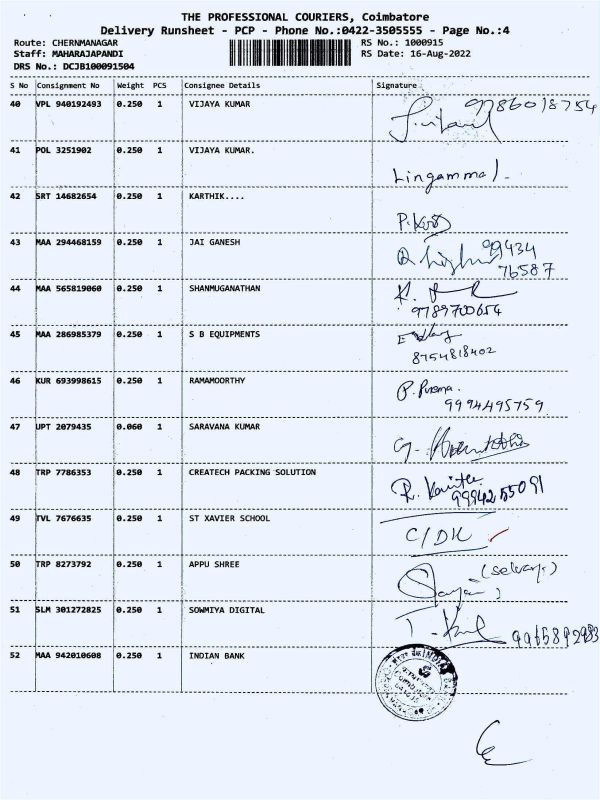 THE PROFESSIONAL COURIERS, Coimbatore
Delivery Runsheet - PCP - Phone No.:0422-3505555 - Page No.:4
Route: CHERNMANAGAR RS No.: 1000915
Staff: MAHARAJAPANDI RS Date: 16-Aug-2022
DRS No.: DCJB100091504
S No Consignment No Weight PCS Consignee Details Signature
40 VPL 940192493 0.250 1 VIJAYA KUMAR 9786018754
41 POL 3251902 0.250 1 VIJAYA KUMAR. Lingammal.
42 SRT 14682654 0.250 1 KARTHIK....
43 MAA 294468159 0.250 1 JAI GANESH 99434
76587
44 MAA 565819060 0.250 1 SHANMUGANATHAN
9789700654
45 MAA 286985379 0.250 1 S B EQUIPMENTS
8754818402
46 KUR 693998615 0.250 1 RAMAMOORTHY
9994495759
47 UPT 2079435 0.060 1 SARAVANA KUMAR
48 TRP 7786353 0.250 1 CREATECH PACKING SOLUTION
9994255091
49 TVL 7676635 0.250 1 ST XAVIER SCHOOL C/DK
50 TRP 8273792 0.250 1 APPU SHREE
51 SLM 301272825 0.250 1 SOWMIYA DIGITAL
9965892983
52 MAA 942010608 0.250 1 INDIAN BANK